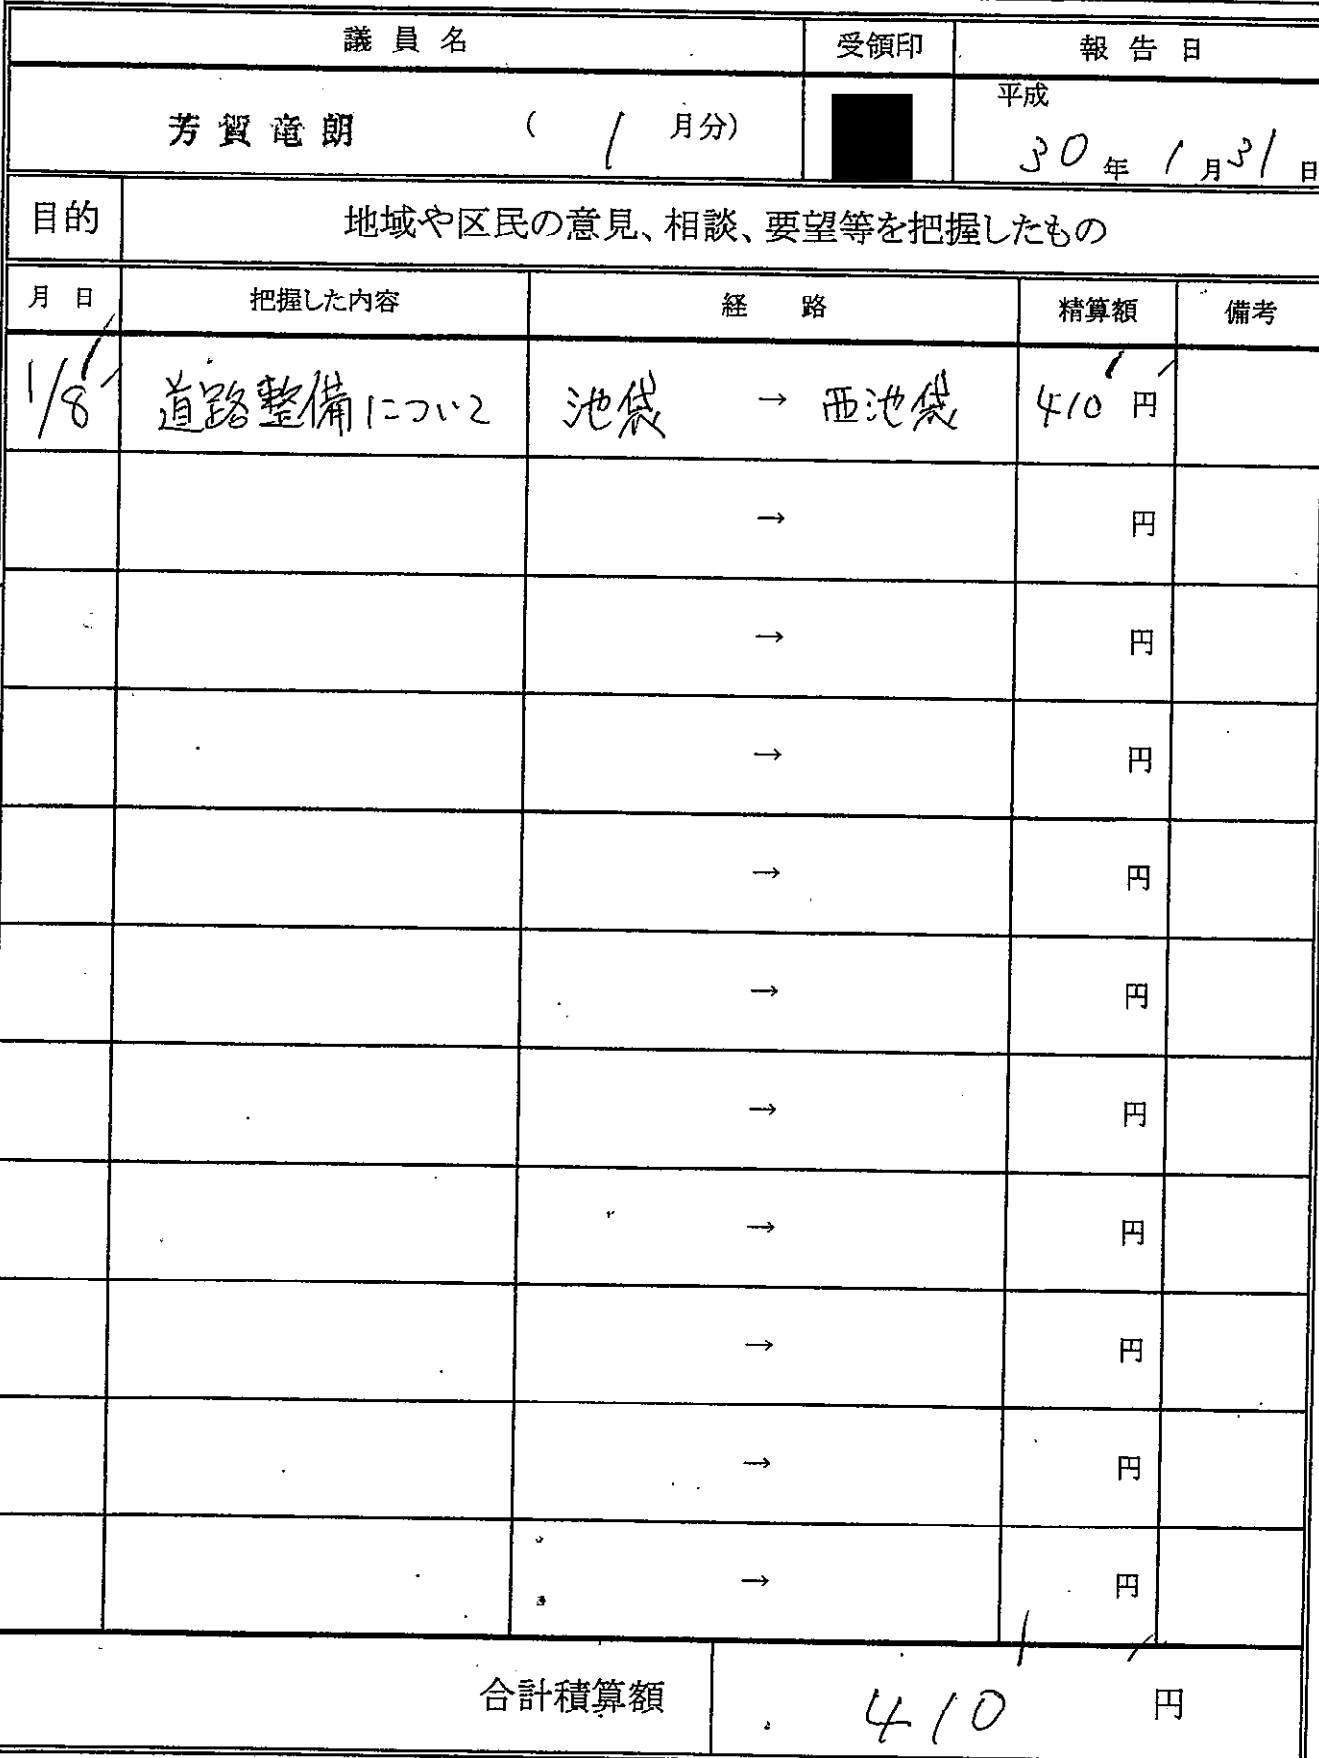 議員名 受領印 報告日
芳賀竜朗 ( 1 月分) 平成
30 年 1 月 31 日
目的 地域や区民の意見、相談、要望等を把握したもの
月 日 把握した内容 経 路 精算額 備考
1/8 道路整備について 池袋 → 西池袋 410 円
→ 円
→ 円
→ 円
→ 円
→ 円
→ 円
→ 円
→ 円
→ 円
→ 円
合計積算額 410 円